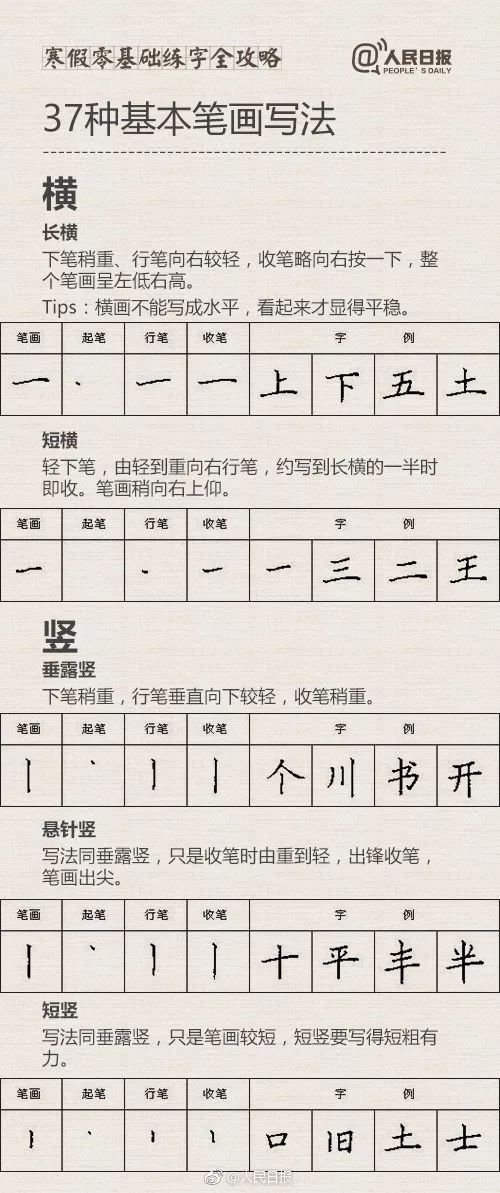 寒假零基础练字全攻略
@人民日报
PEOPLE'S DAILY
37种基本笔画写法
横
长横
下笔稍重、行笔向右较轻，收笔略向右按一下，整
个笔画呈左低右高。
Tips：横画不能写成水平，看起来才显得平稳。
笔画 起笔 行笔 收笔 字 例
一 一 一 上 下 五 土
短横
轻下笔，由轻到重向右行笔，约写到长横的一半时
即收。笔画稍向右上仰。
笔画 起笔 行笔 收笔 字 例
一 一 一 三 二 王
竖
垂露竖
下笔稍重，行笔垂直向下较轻，收笔稍重。
笔画 起笔 行笔 收笔 字 例
丨 丶 丨 丨 个 川 书 开
悬针竖
写法同垂露竖，只是收笔时由重到轻，出锋收笔，
笔画出尖。
笔画 起笔 行笔 收笔 字 例
丨 丶 丨 丨 十 平 丰 半
短竖
写法同垂露竖，只是笔画较短，短竖要写得短粗有
力。
笔画 起笔 行笔 收笔 字 例
丨 丶 丨 丨 口 旧 土 士
@人民日报